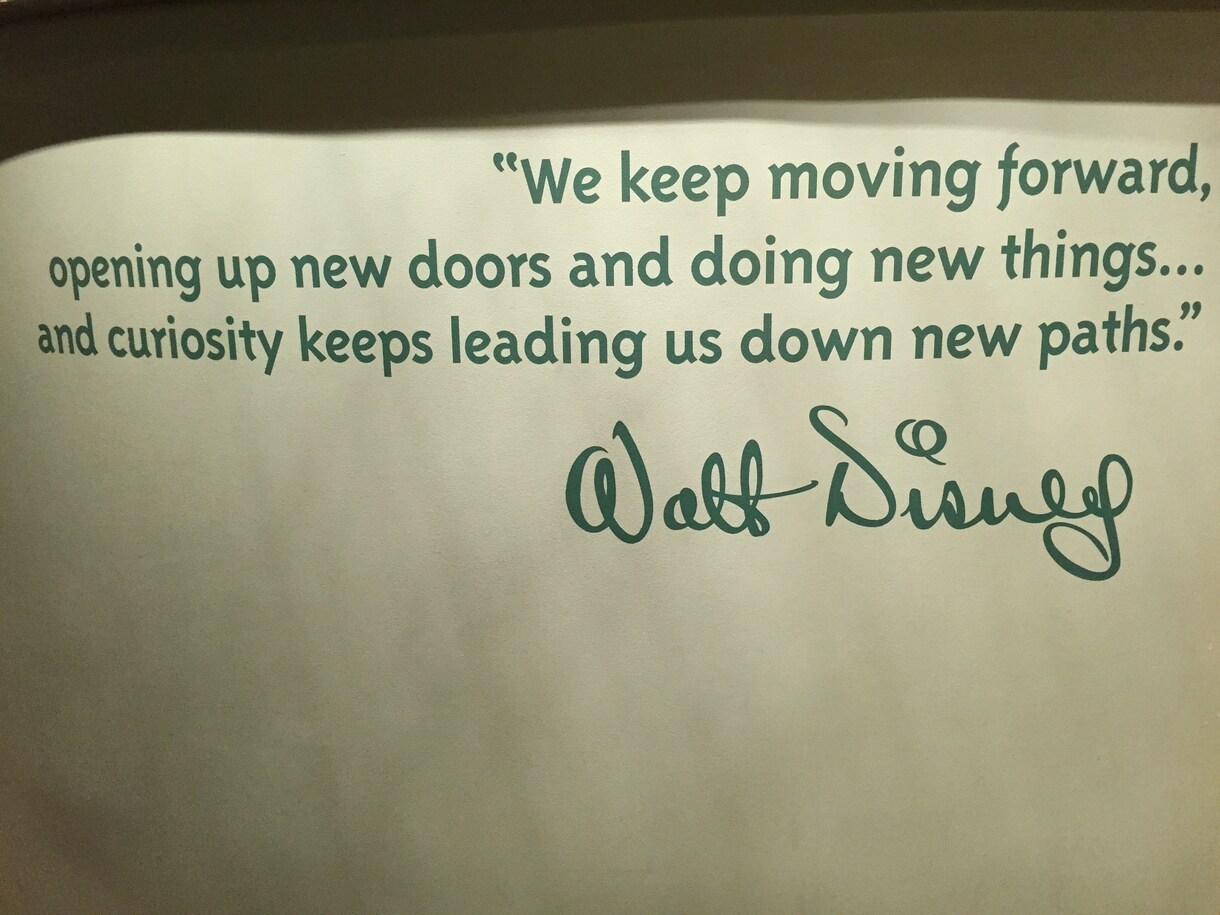 “We keep moving forward,
opening up new doors and doing new things...
and curiosity keeps leading us down new paths.”
Walt Disney